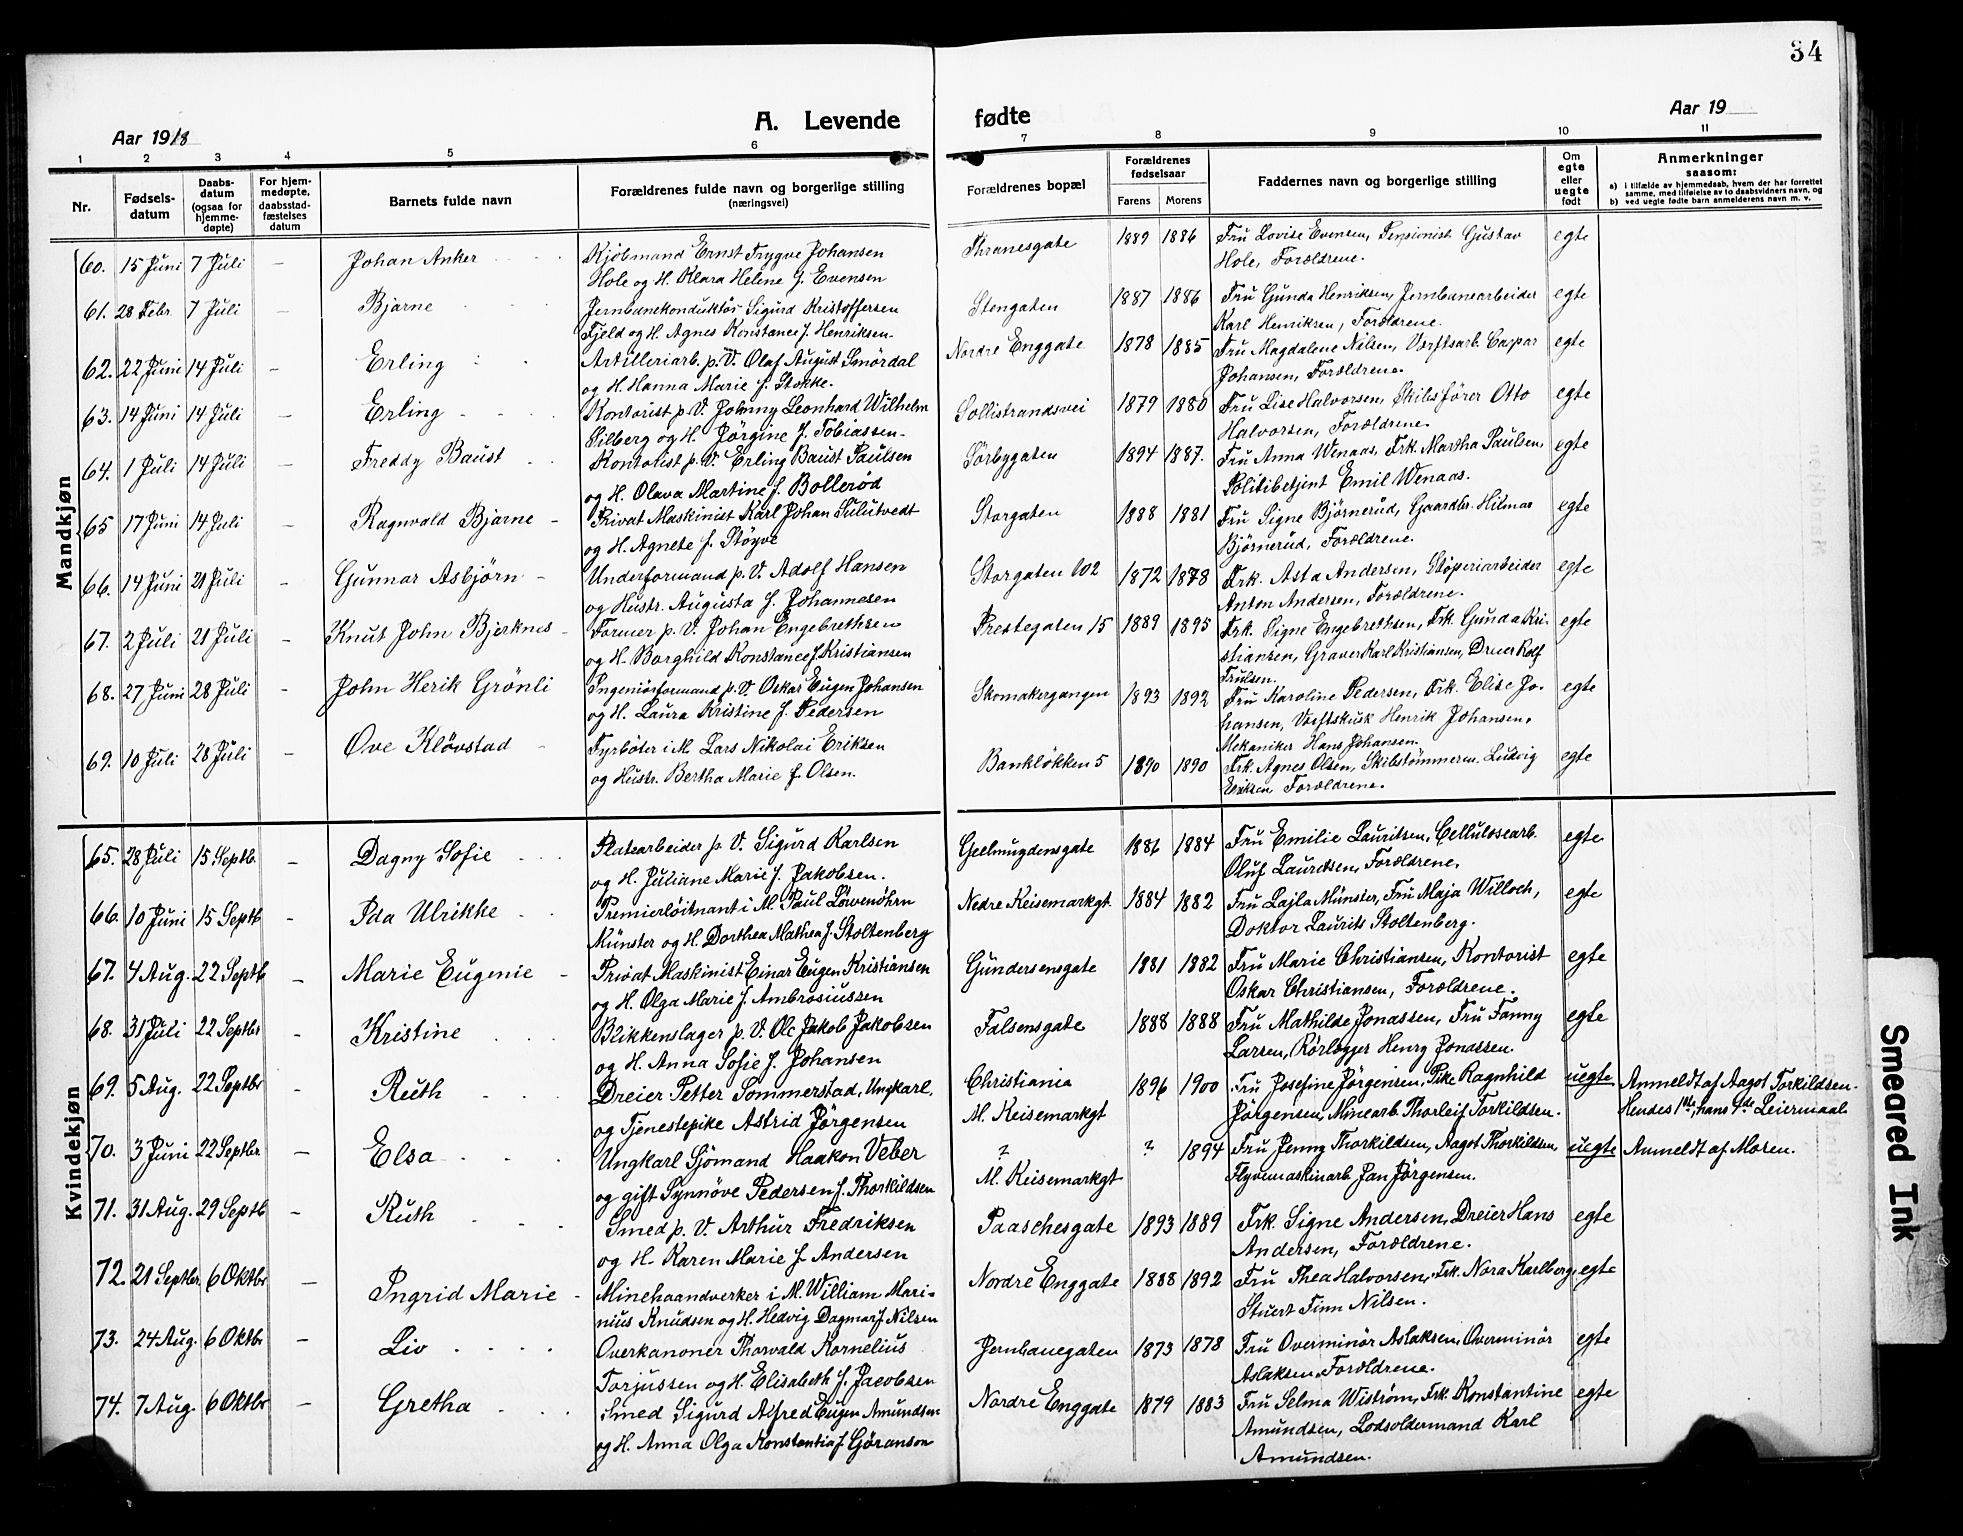 34
Aar 1918
A. Levende
fødte
Aar 19
1 2 3 4 5 6 7 8 9 10 11
Nr.
Fødsels-
datum
Daabs-
datum
(ogsaa for
hjemme-
døpte)
For hjem-
medøpte,
daabsstad-
fæstelses
datum
Barnets fulde navn
Forældrenes fulde navn og borgerlige stilling
(næringsvei)
Forældrenes bopæl
Forældrenes
fødselsaar
Farens Morens
Faddernes navn og borgerlige stilling
Om
egte
eller
uegte
født
Anmerkninger
saasom:
a) i tilfælde av hjemmedaab, hvem der har forrettet
samme, med tilføielse av to daabsvidners navn, og
b) ved uegte fødte barn anmelderens navn m. v.
Mandkjøn
60. 15 Juni 7 Juli — Johan Anker Kjöbmand Ernst Trygve Johansen Thranesgate 1889 1886 Fru Lovise Evensen, Pensionist Gustav egte
Hole og H. Klara Helene f. Evensen Hole, Forældrene.
61. 28 Febr. 7 Juli — Bjarne Jernbanekonduktör Sigurd Kristoffersen Stengaten 1887 1886 Fru Gunda Henriksen, Jernbanearbeider egte
Fjeld og H. Agnes Konstance f. Henriksen. Karl Henriksen, Forældrene.
62. 22 Juni 14 Juli — Erling Artilleriarb. p. V. Olaf August Smördal Nordre Enggate 1878 1885 Fru Magdalene Nilsen, Værftsarb. Caspar egte
og H. Hanna Marie f. Stokke. Johansen, Forældrene.
63. 14 Juni 14 Juli — Erling Kontorist p. V. Johnny Leonhard Wilhelm Sollistrandsvei 1879 1880 Fru Lise Halvorsen, Skibsfører Otto egte
Silberg og H. Jörgine f. Tobiassen. Halvorsen, Forældrene.
64. 1 Juli 14 Juli — Freddy Baust Kontorist p. V. Erling Baust Paulsen Sörbygaten 1894 1887. Fru Anna Wenaas, Frk. Martha Paulsen, egte
og H. Olava Martine f. Bolleröd Politibetjent Emil Wenaas.
65 17 Juni 14 Juli — Ragnvald Bjarne Privat Maskinist Karl Johan Sulutvedt Storgaten 1888 1881 Fru Signe Björnerud, Gaardbr. Hilmar egte
og H. Agnete f. Stöyve Björnerud, Forældrene.
66. 14 Juni 21 Juli — Gunnar Asbjörn Underformand p. V. Adolf Hansen Storgaten 102 1872 1878 Frk. Asta Andersen, Støperiarbeider egte
og Hustr. Augusta f. Johannesen Anton Andersen, Forældrene.
67. 2 Juli 21 Juli — Knut John Bjerknes Former p. V. Johan Engebrethsen Prestegaten 15 1889 1895 Frk. Signe Engebrethsen, Frk. Gunda Kri- egte
og H. Borghild Konstance f. Kristiansen stiansen, Graver Karl Kristiansen, Dreier Rolf
Trulsen.
68. 27 Juni 28 Juli — John Herik Grönli Ingeniörformand p. V. Oskar Eugen Johansen Skomakergangen 1893 1892 Fru Karoline Pedersen, Frk. Elise Jo- egte
og H. Laura Kristine f. Pedersen hansen, Værftskusk Henrik Johansen,
Mekaniker Hans Johansen.
69. 10 Juli 28 Juli — Ove Klövstad Fyrböter i M. Lars Nikolai Eriksen Banklökken 5 1890 1890 Frk. Agnes Olsen, Skibstömmerm. Ludvig egte
og Hustr. Bertha Marie f. Olsen. Eriksen Forældrene.
Kvindekjøn
65. 28 Juli 15 Septb. — Dagny Sofie Platsarbeider p. V. Sigurd Karlsen Geelmuydensgate 1886 1884 Fru Emilie Lauritsen, Cellulosearb. egte
og H. Juliane Marie f. Jakobsen. Oluf Lauritsen, Forældrene.
66. 10 Juni 15 Septb — Ida Ulrikke Premierløitnant i M. Paul Löwenöhrn Nedre Keisemarkgt. 1884 1882 Fru Lajla Münster, Fru Maja Willoch, egte
Münster og H. Dorthea Mathea f. Stoltenberg Doktor Laurits Stoltenberg.
67. 4 Aug. 22 Septb — Marie Eugenie Privat Maskinist Einar Eugen Kristiansen Gundersensgate 1881 1882 Fru Marie Christiansen, Kontorist egte
og H. Olga Marie f. Ambrosiussen Oskar Christiansen, Forældrene.
68. 31 Juli 22 Septbr — Kristine Blikkenslager p. V. Ole Jakob Jakobsen Falsensgate 1888 1888 Fru Mathilde Jonassen, Fru Fanny egte
og H. Anna Sofie f. Johansen Larsen, Rörlegger Henry Jonassen.
69. 5 Aug. 22 Septbr — Ruth Dreier Petter Sommerstad, Ungkarl, Christiania 1896 1900 Fru Josefine Jörgensen, Pike Ragnhild uegte Anmeldt af Aagot Torkildsen.
og Tjenestepike Astrid Jörgensen M. Keisemarkgt Jörgensen, Minearb. Thorleif Torkildsen. Hendes 1ste, hans 1ste Leiermaal
70. 3 Juni 22 Septbr — Elsa Ungkarl Sjömand Haakon Veber ? ? 1894 Fru Jenny Thorkildsen, Aagot Thorkildsen, uegte Anmeldt af Moren.
og gift Synnöve Pedersen f. Thorkildsen M. Keisemarkgt Flyvemaskinarb. Jan Jørgensen.
71. 31 Aug. 29 Septb — Ruth Smed p. V. Arthur Fredriksen Paaschesgate 1893 1889 Frk. Signe Andersen, Dreier Hans egte
og H. Karen Marie f. Andersen Andersen, Forældrene.
72. 21 Septbr 6 Oktbr — Ingrid Marie Minehaandverker i M. William Mari- Nordre Enggate 1888 1892 Fru Thea Halvorsen, Frk. Nora Karlberg, egte
nius Knudsen og H. Hedvig Dagmar f. Nilsen Stuert Finn Nilsen.
73. 24 Aug. 6 Oktbr — Liv Overkanoner Thorvald Kornelius Jernbanegaten 1873 1878 Fru Overminör Aslaksen, Overminör egte
Torjussen og H. Elisabeth f. Jacobsen Aslaksen, Forældrene.
74. 7 Aug. 6 Oktbr — Gretha Smed Sigurd Alfred Eugen Amundsen Nordre Enggate 1879 1883 Fru Selma Wiström, Frk. Konstantine egte
og H. Anna Olga Konstantia f. Göranson Amundsen, Lodsoldermand Karl
Amundsen.
Smeared Ink